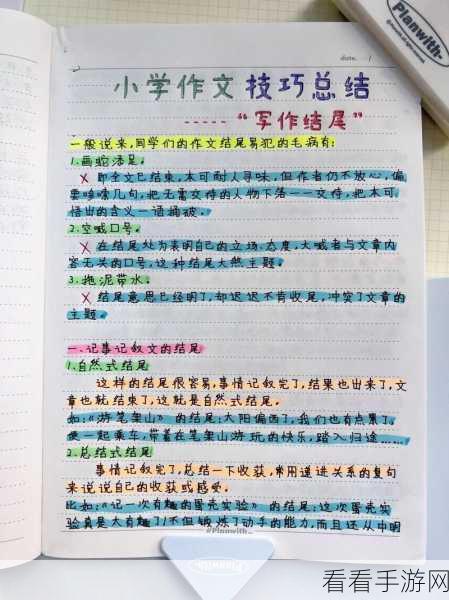 Planwith-
date. /
小学作文技巧总结
-----“写作结尾”
一般说来,同学们的作文结尾易犯的毛病有:
1.画蛇添足。
X 即全文已结束,本可耐人寻味,但作者仍不放心,偏
要啰嗦几句,把无需交待的人物下落一一交待,把本可
悟出的含义一语摘破。
2.空喊口号。
X 在结尾处为表明自己的立场、态度,大喊着与文章内
容无关的口号,这种结尾大煞主题。
3.拖泥带水。
X 结尾意思已经明了,却迟迟不肯收尾,冲突了文章的
主题。
一.记事记叙文的结尾
1.自然式结尾
这样的结尾很容易,事情记叙完了,结果也出来了,文
章也就结束了,这就是自然式结尾。
如:《游笔架山》的结尾:太阳偏西了,我们也有点累了,
便一起乘车,带着在笔架山游玩的快乐,踏入归途……
2.总结式结尾
事情记叙完了,总结一下收获,常用递进关系的复句
来说说自己的收获或感受。
比如:《记一次有趣的蛋壳实验》的结尾:这次蛋壳实
验真是太有趣了!不但锻炼了动手的能力,而且还从中明
#Planwith-
Planwith-
看看手游网